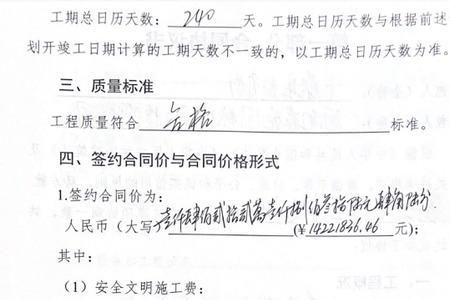 工期总日历天数：240 天。工期总日历天数与根据前述
划开竣工日期计算的工期天数不一致的，以工期总日历天数为准。
三、质量标准
工程质量符合 合格 标准。
四、签约合同价与合同价格形式
1.签约合同价为：
人民币（大写）壹仟肆佰贰拾贰万壹仟捌佰叁拾陆元肆角陆分
(¥14221836.46 元);
其中：
（1）安全文明施工费：